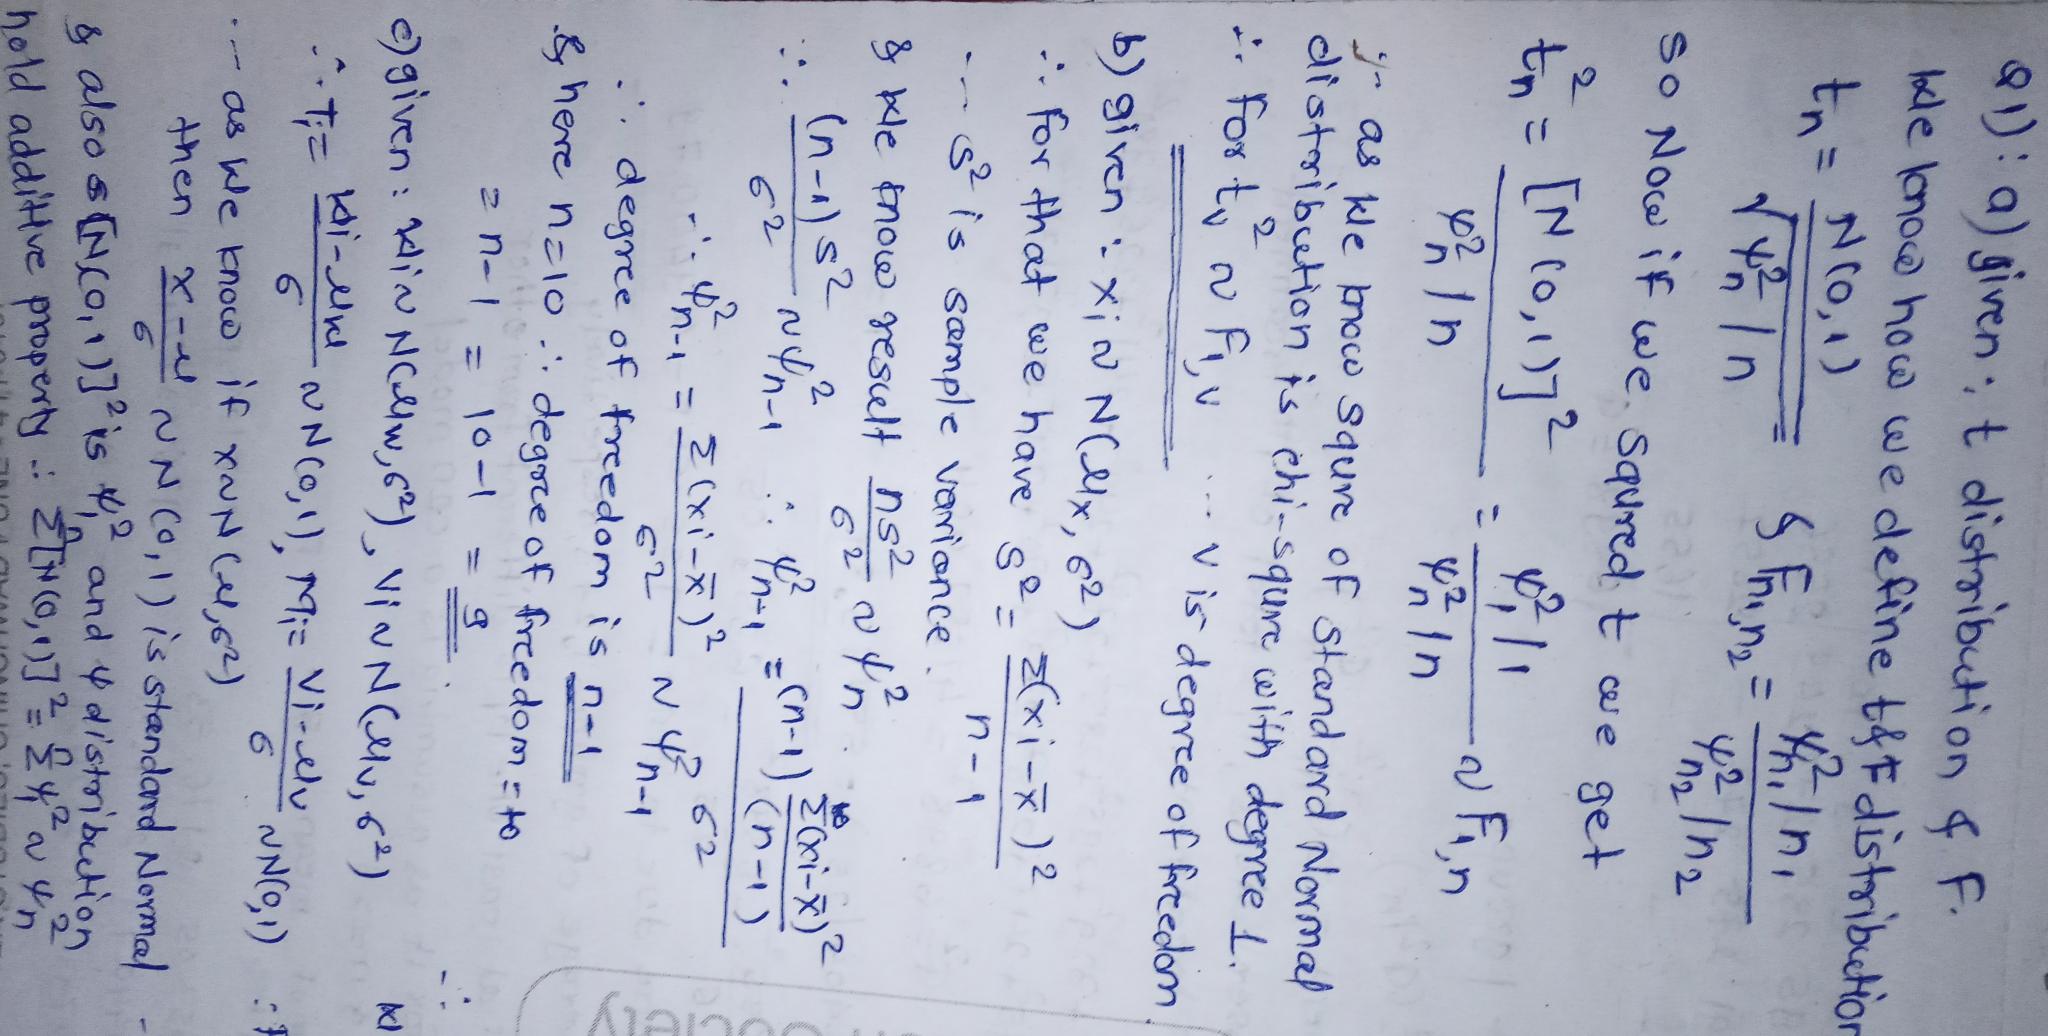 Q1): a) given: t distribution & F.
We know how we define t & F distribution
tn = N(0,1) / √ψ²n/n & Fn1,n2 = ψ²n1/n1 / ψ²n2/n2
so Now if we squred t we get
tn² = [N(0,1)]² / ψ²n/n = ψ²1/1 / ψ²n/n ~ F1,n
∵ as we know squre of standard Normal
distribution is chi-squre with degree 1.
∴ For tν² ~ F1,ν ... ν is degree of freedom
b) given: xi ~ N(μx, σ²)
∴ for that we have s² = Σ(xi-x̄)² / n-1
-- s² is sample variance.
& We know result ns²/σ² ~ ψ²n.
∴ (n-1)s²/σ² ~ ψ²n-1 ∴ ψ²n-1 = (n-1) Σ(xi-x̄)²/(n-1) / σ²
∴ ψ²n-1 = Σ(xi-x̄)²/σ² ~ ψ²n-1
∴ degree of freedom is n-1
& here n=10 ∴ degree of freedom = 10
= n-1 = 10-1 = 9
c) given: Wi ~ N(μw, σ²), Vi ~ N(μv, σ²)
∴ Ti = Wi-μw/σ ~ N(0,1), Mi = Vi-μv/σ ~ N(0,1)
-- as we know if x ~ N(μ, σ²)
then x-μ/σ ~ N(0,1) is standard Normal
& also [N(0,1)]² is ψ²1 and ψ distribution
hold additive property ∴ Σⁿ[N(0,1)]² = Σⁿψ1² ~ ψ²n
society